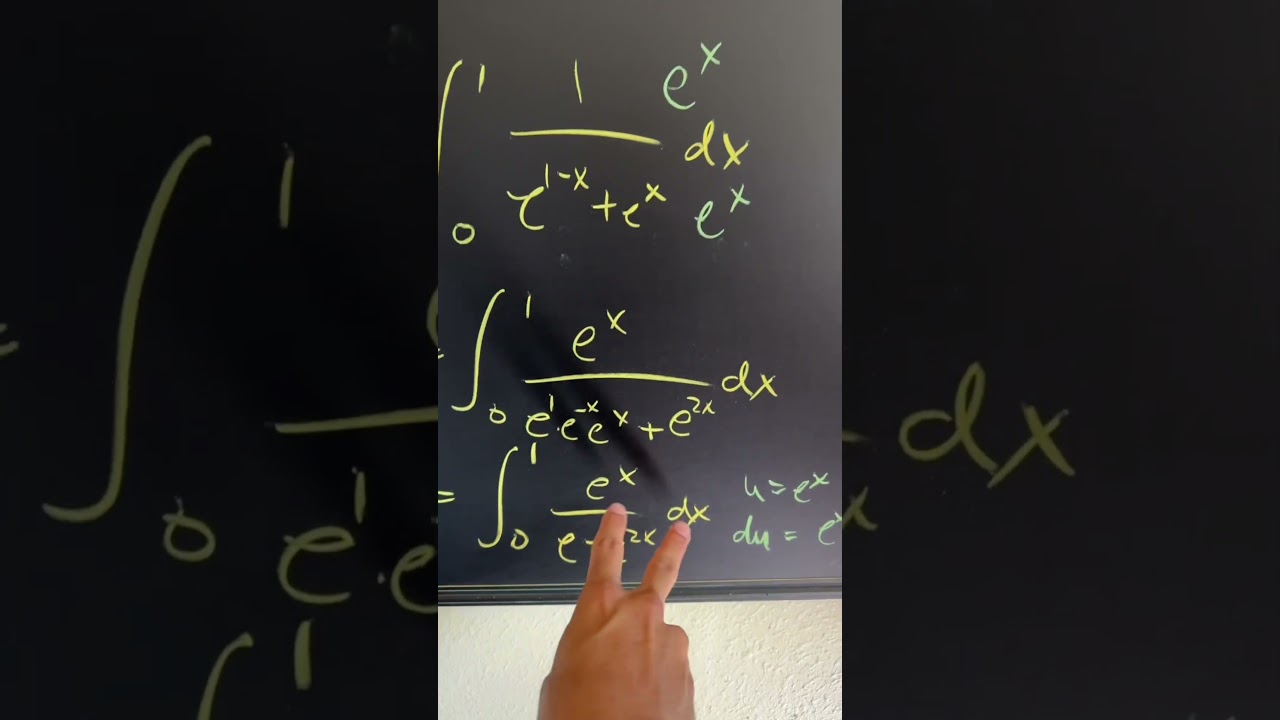 ∫₀¹ 1/(e^(1-x) + e^x) e^x/e^x dx
= ∫₀¹ e^x/(e^1·e^(-x)e^x + e^(2x)) dx
= ∫₀¹ e^x/(e + e^(2x)) dx u = e^x
du = e^x